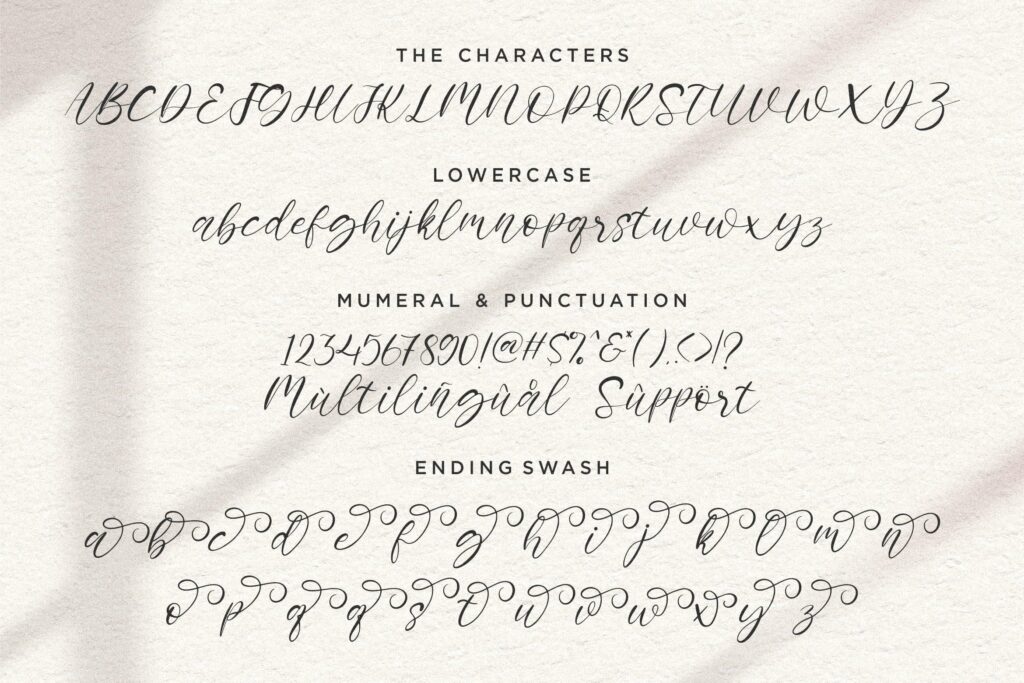 THE CHARACTERS
ABCDEFGHIJKLMNOPQRSTUVWXYZ
LOWERCASE
abcdefghijklmnopqrstuvwxyz
MUMERAL & PUNCTUATION
1234567890!@#$%^&*().,<>|?
Mùltiliñgûål Sûppört
ENDING SWASH
a b c d e f g h i j k l m n
o p q q s t u v w x y z